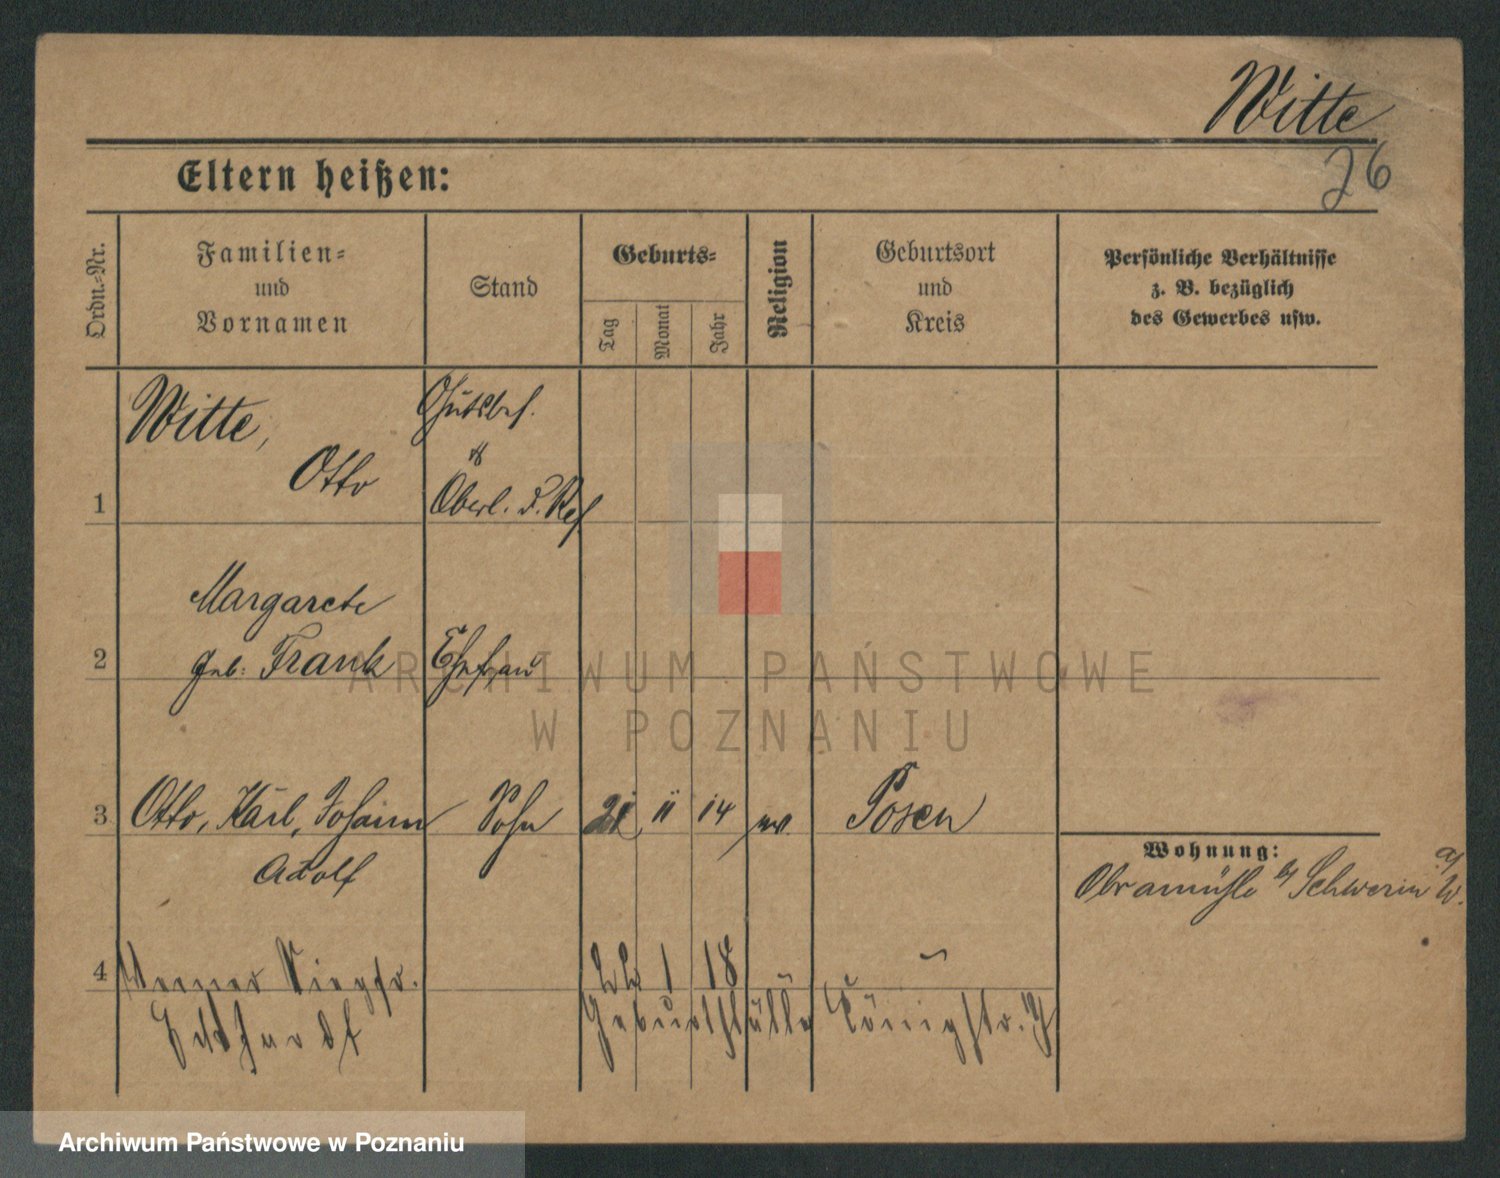 Witte
26
Eltern heißen:
Ordn.-Nr.
Familien-
und
Vornamen
Stand
Geburts-
Tag
Monat
Jahr
Religion
Geburtsort
und
Kreis
Persönliche Verhältnisse
z. B. bezüglich
des Gewerbes usw.
1 Witte, Otto
Gutsbes.
Oberl. d. Res.
2 Margarete
geb: Frank Ehefrau
3 Otto, Karl, Johann Sohn 21 11 14 ev. Posen
Adolf
Wohnung:
Obramühle b/ Schwerin a/W.
4 Werner Siegfr. 22 1 18
Eckhardt
Königstr.
ARCHIWUM PAŃSTWOWE
W POZNANIU
Archiwum Państwowe w Poznaniu